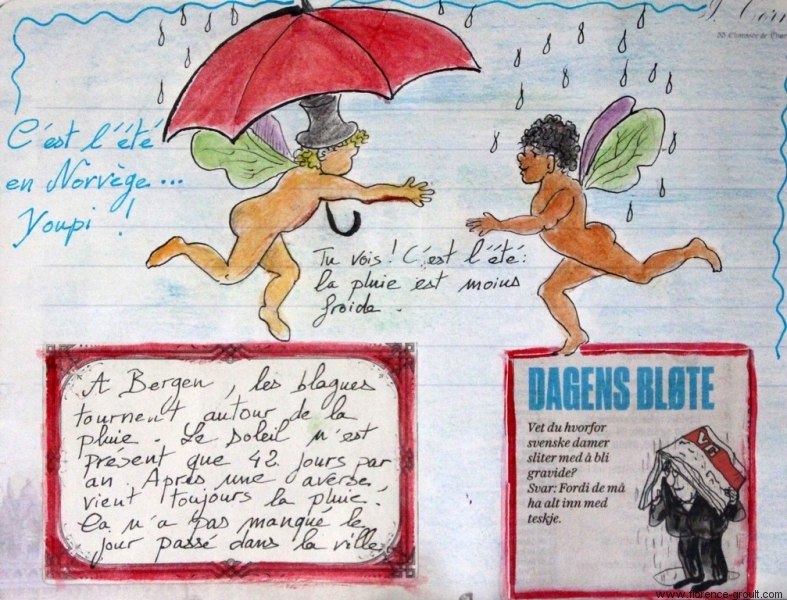 C'est l'été
en Norvège...
Youpi !
Tu vois ! C'est l'été :
la pluie est moins
froide.
A Bergen, les blagues
tournent autour de la
pluie. Le soleil n'est
présent que 42 jours par
an. Après une averse
vient toujours la pluie !
Ca n'a pas manqué le
jour passé dans la ville
DAGENS BLØTE
Vet du hvorfor
svenske damer
sliter med å bli
gravide?
Svar: Fordi de må
ha alt inn med
teskje.
www.florence-groult.com